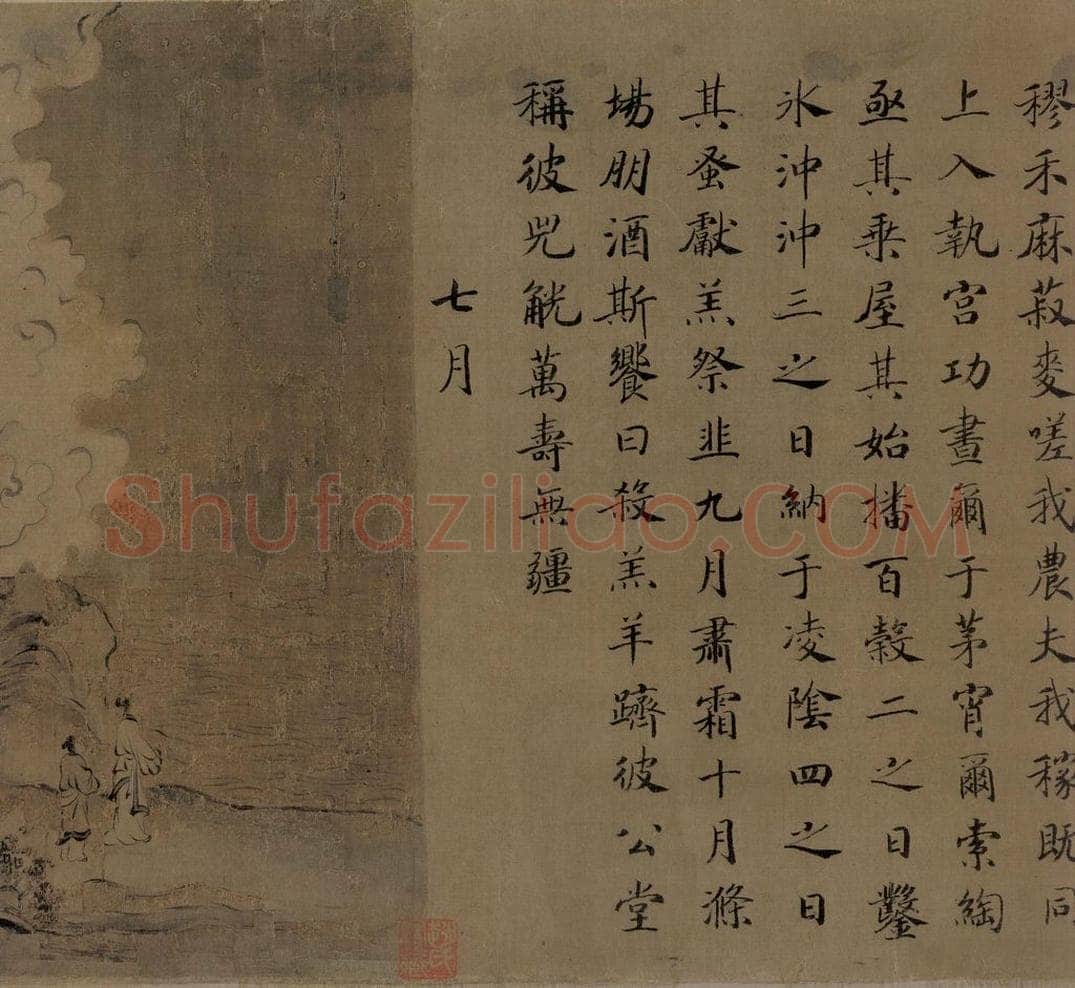 穋禾麻菽麥嗟我農夫我稼既同
上入執宮功晝爾于茅宵爾索綯
亟其乘屋其始播百穀二之日鑿
冰沖沖三之日納于凌陰四之日
其蚤獻羔祭韭九月肅霜十月滌
場朋酒斯饗曰殺羔羊躋彼公堂
稱彼兕觥萬壽無疆
七月
Shufaziliao.COM